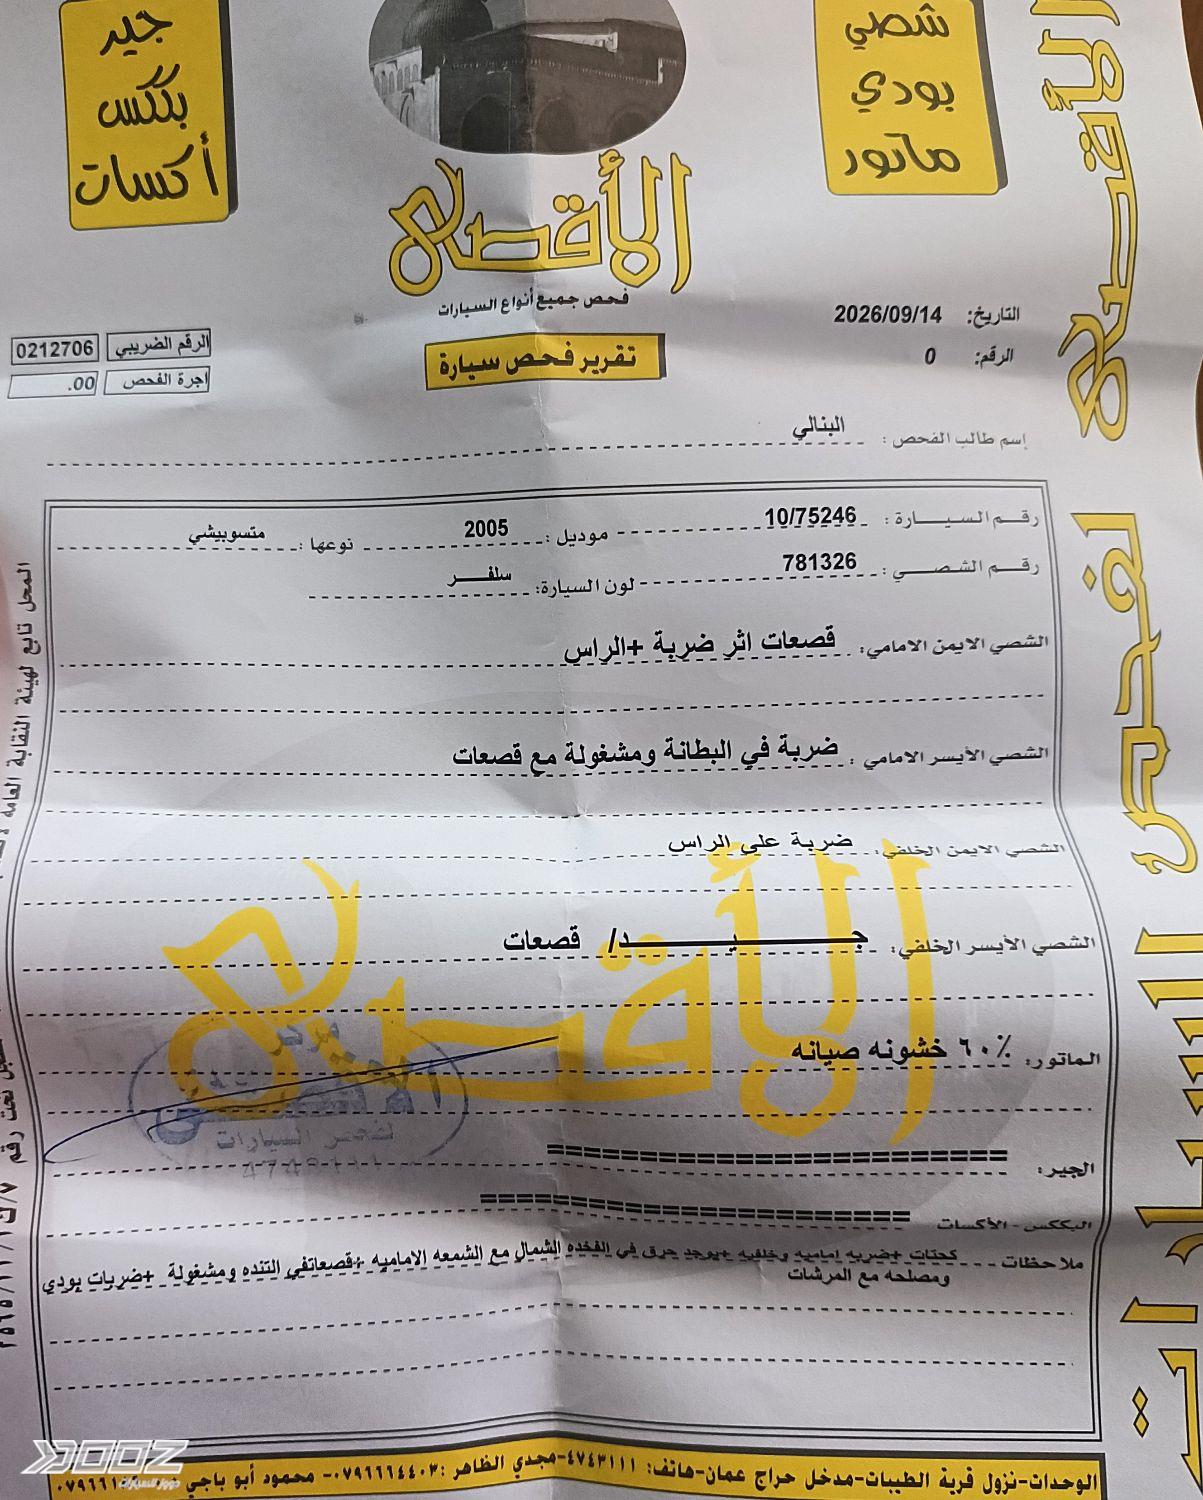 جير
بككس
أكسات
شصي
بودي
ماتور
الأقصى
فحص جميع أنواع السيارات
تقرير فحص سيارة
التاريخ: 2026/09/14
الرقم: 0
الرقم الضريبي 0212706
اجرة الفحص .00
إسم طالب الفحص : البنالي
رقم السيارة : 10/75246 موديل : 2005 نوعها : متسوبيشي
رقم الشصي : 781326 لون السيارة: سلفر
الشصي الايمن الامامي: قصعات اثر ضربة +الراس
الشصي الأيسر الامامي : ضربة في البطانة ومشغولة مع قصعات
الشصي الايمن الخلفي: ضربة على الراس
الشصي الأيسر الخلفي: جيد/ قصعات
الماتور: ٦٠٪ خشونه صيانه
الجير: ========================
البككس - الأكسات ========================
ملاحظات كحتات +ضربه اماميه وخلفيه +يوجد حرق في الفخده الشمال مع الشمعه الاماميه +قصعاتفي التنده ومشغولة +ضربات بودي
ومصلحه مع المرشات
الأقصى
مركز
الأقصى
لفحص السيارات
الوحدات-نزول قرية الطيبات-مدخل حراج عمان-هاتف: ٤٧٤٣١١١-مجدي الظاهر :٠٧٩٦٦٦٤٤٠٣- محمود أبو
الأقصى لفحص السيارات
المحل تابع لهيئة النقابة العامة
تحت رقم
DOOZ
دووز للسيارات